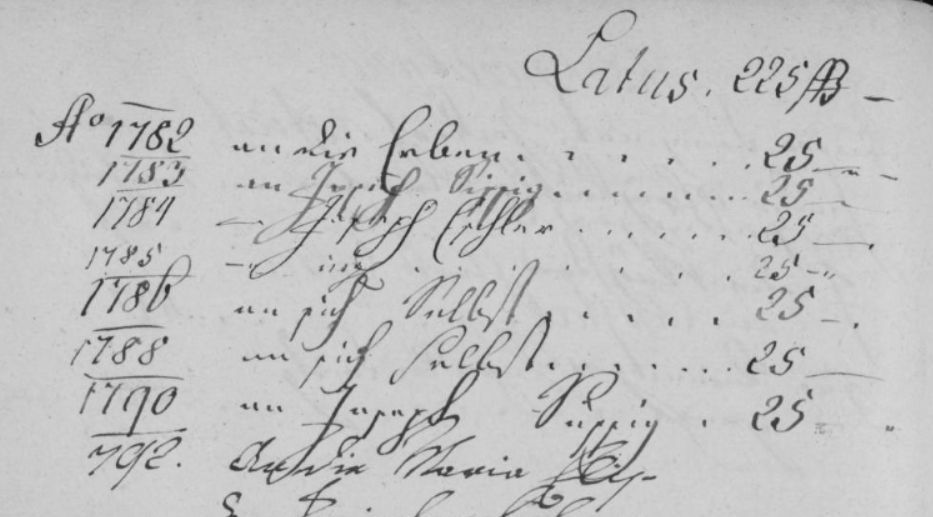 Latus. 225 fl –
Ao 1782 an die Erben . . . . . . 25 –
1783 an Joseph Süssig . . . . . . 25 –
1784 – Joseph Eichler . . . . . . 25 –
1785 – . . . . . 25 –
1786 an sich Selbst . . . . . 25 –
1788 an sich Selbst . . . . . . 25 –
1790 an Joseph Süssig . 25 –
792. An die Maria